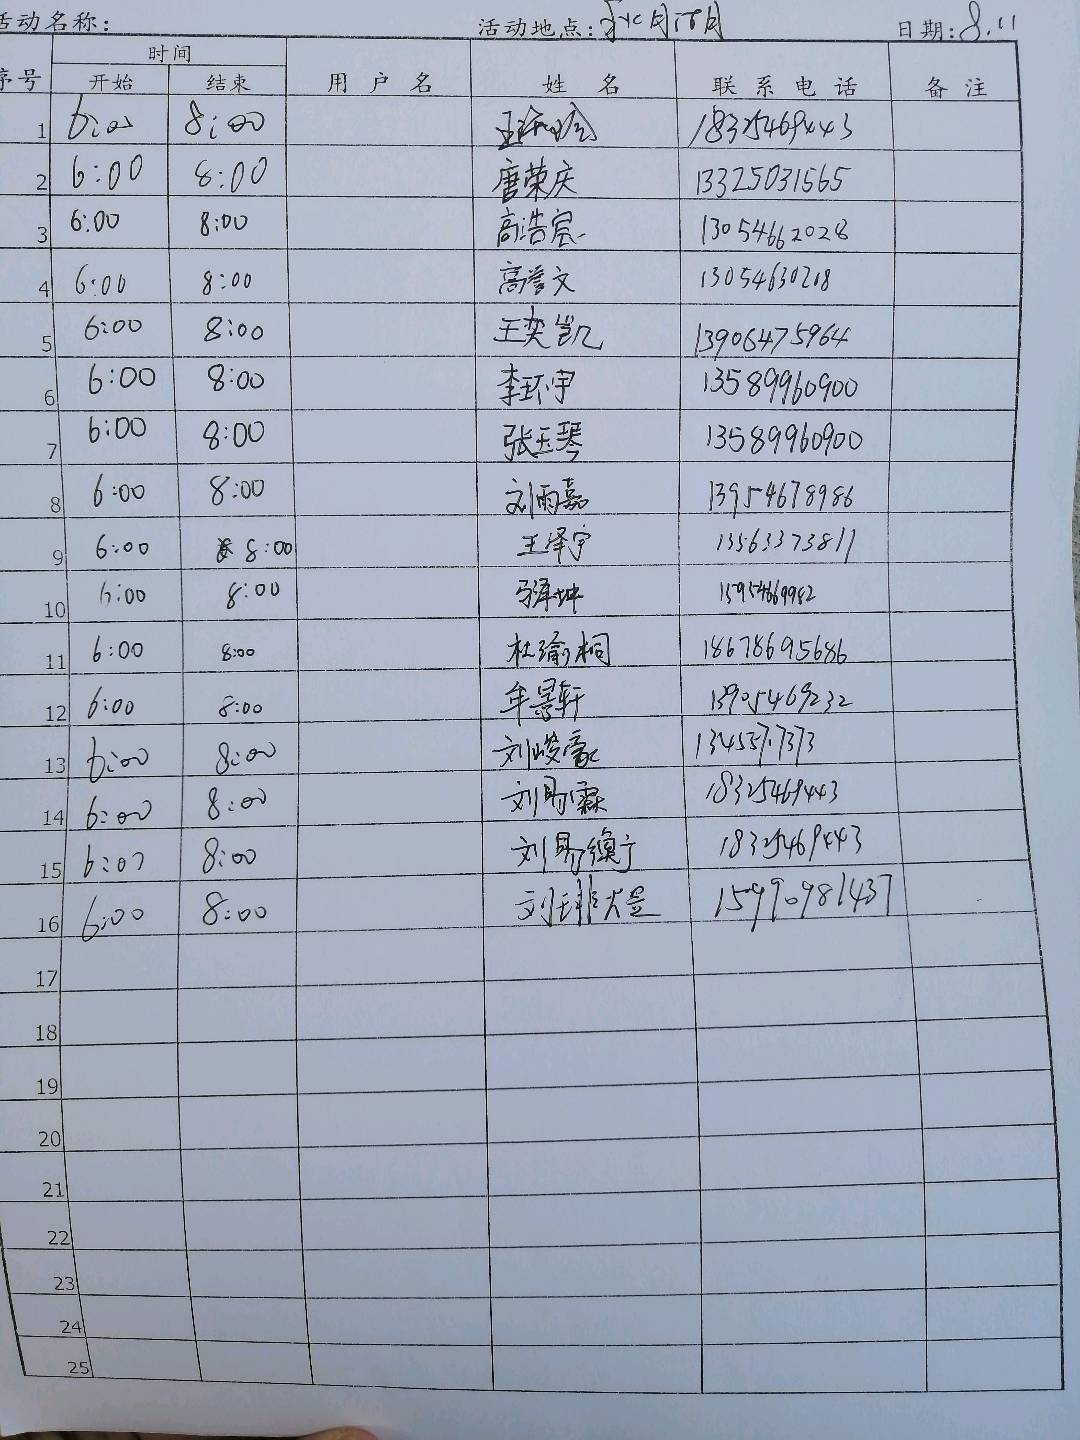 活动名称: 活动地点: 日期: 8.11
序号 时间 用户名 姓名 联系电话 备注
开始 结束
1 6:00 8:00 18325469443
2 6:00 8:00 唐荣庆 13325031565
3 6:00 8:00 高浩宸 13054662028
4 6:00 8:00 高誉文 13054630218
5 6:00 8:00 王奕凯 13906475964
6 6:00 8:00 李环宇 13589960900
7 6:00 8:00 张玉琴 13589960900
8 6:00 8:00 刘雨嘉 13954678986
9 6:00 8:00 王泽宇 13563373811
10 6:00 8:00 15954669982
11 6:00 8:00 杜瑜桐 18678695686
12 6:00 8:00 牟景轩 13905469232
13 6:00 8:00 刘峻豪
14 6:00 8:00 刘易霖 18325469443
15 6:00 8:00 刘易 18325469443
16 6:00 8:00 刘 15990981437
17
18
19
20
21
22
23
24
25